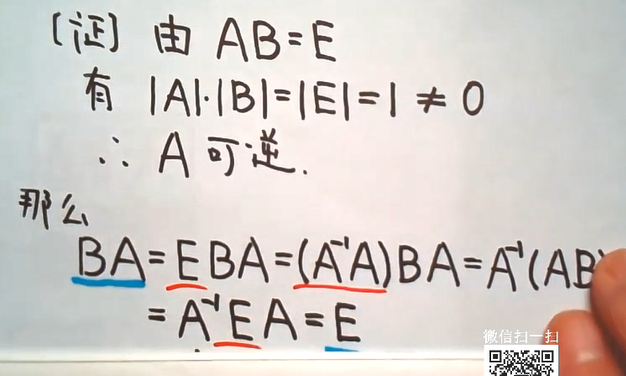 [证] 由 AB=E
有 |A|·|B|=|E|=1≠0
∴ A可逆.
那么
BA=EBA=(A⁻¹A)BA=A⁻¹(AB)
=A⁻¹EA=E
微信扫一扫